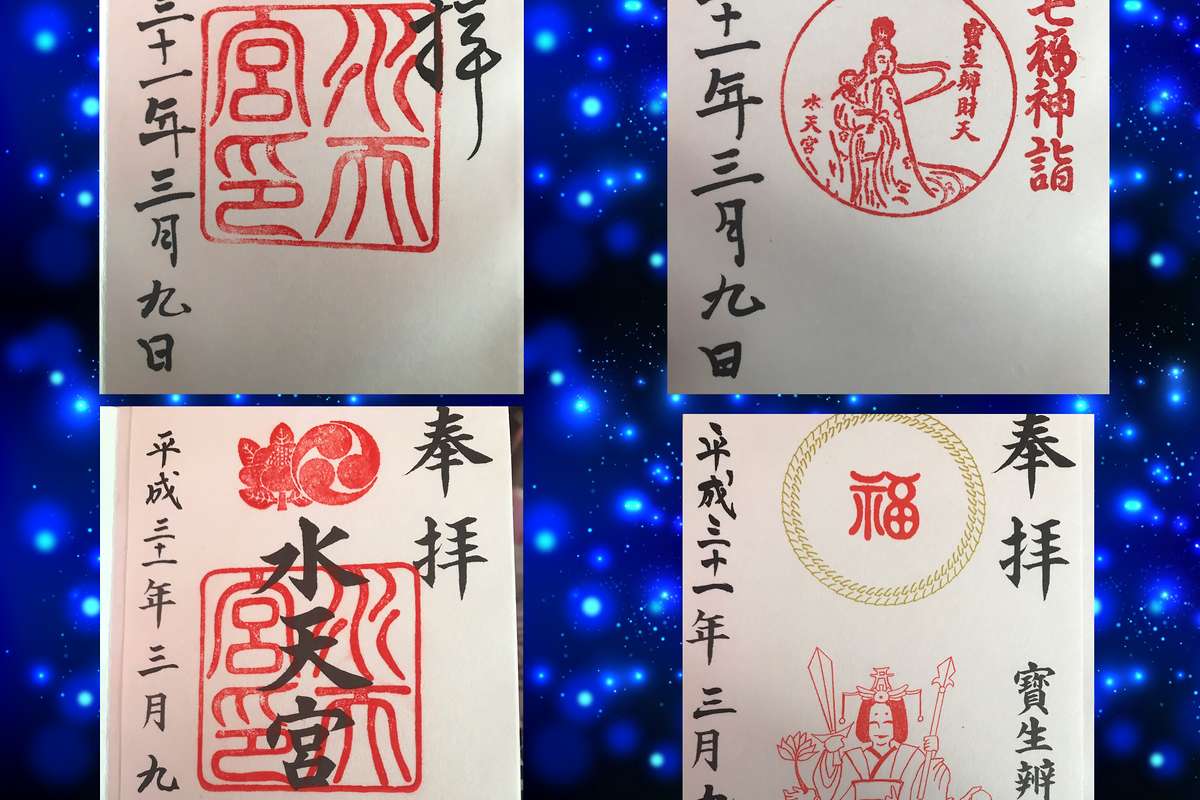 拝
水天
宮印
三十一年三月九日
七福神詣
寶生辨財天
水天宮
十一年三月九日
奉拝
水天宮
水天
宮印
平成三十一年三月九
奉拝
寶生辨
福
平成三十一年三月九